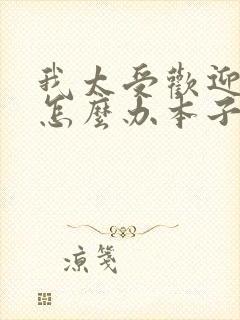 我太受歡迎
怎麼办本子
凉笺